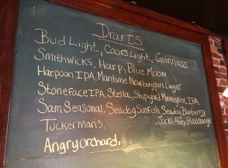 Drafts
Bud Light, Coors Light, Guinness
Smithwicks, Harp, Blue Moon
Harpoon IPA, Maritime Newburyport Lager
Stoneface IPA, Stella, Shipyard IPA
Sam Seasonal, Seadog Sunfish, Seadog Blueberry
Tuckermans, Jacks Abby
Angry orchard,